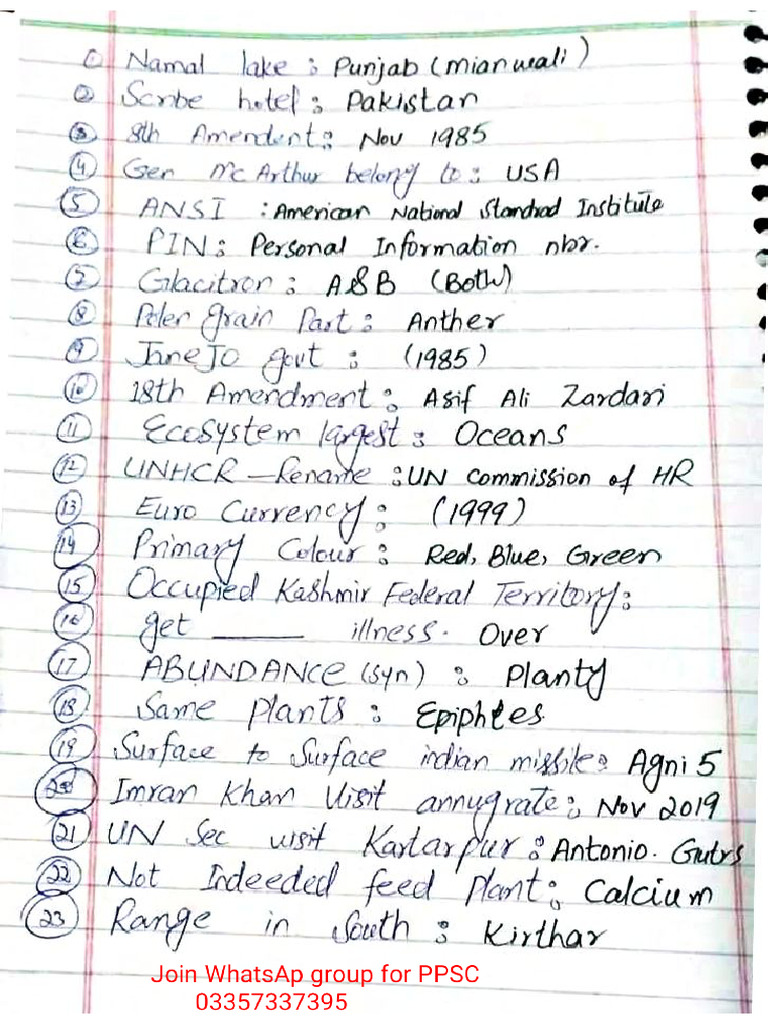 ① Namal lake : Punjab (mianwali)
② Scribe hotel : Pakistan
③ 8th Amendent : Nov 1985
④ Gen McArthur belong to : USA
⑤ ANSI : American National Standrad Institute
⑥ PIN : Personal Information nbr.
⑦ Glacitron : A&B (Both)
⑧ Polen grain Part : Anther
⑨ JuneJo govt : (1985)
⑩ 18th Amendment : Asif Ali Zardari
⑪ Ecosystem largest : Oceans
⑫ UNHCR – Rename : UN Commission of HR
⑬ Euro Currency : (1999)
⑭ Primary Colour : Red, Blue, Green
⑮ Occupied Kashmir Federal Territory :
⑯ get ______ illness. Over
⑰ ABUNDANCE (syn) : Planty
⑱ Same plants : Epiphtes
⑲ Surface to Surface indian missile : Agni 5
⑳ Imran Khan Visit annugrate : Nov 2019
㉑ UN Sec visit Kartarpur : Antonio. Gutrs
㉒ Not Indeeded feed Plant : Calcium
㉓ Range in South : Kirthar
Join WhatsAp group for PPSC
03357337395